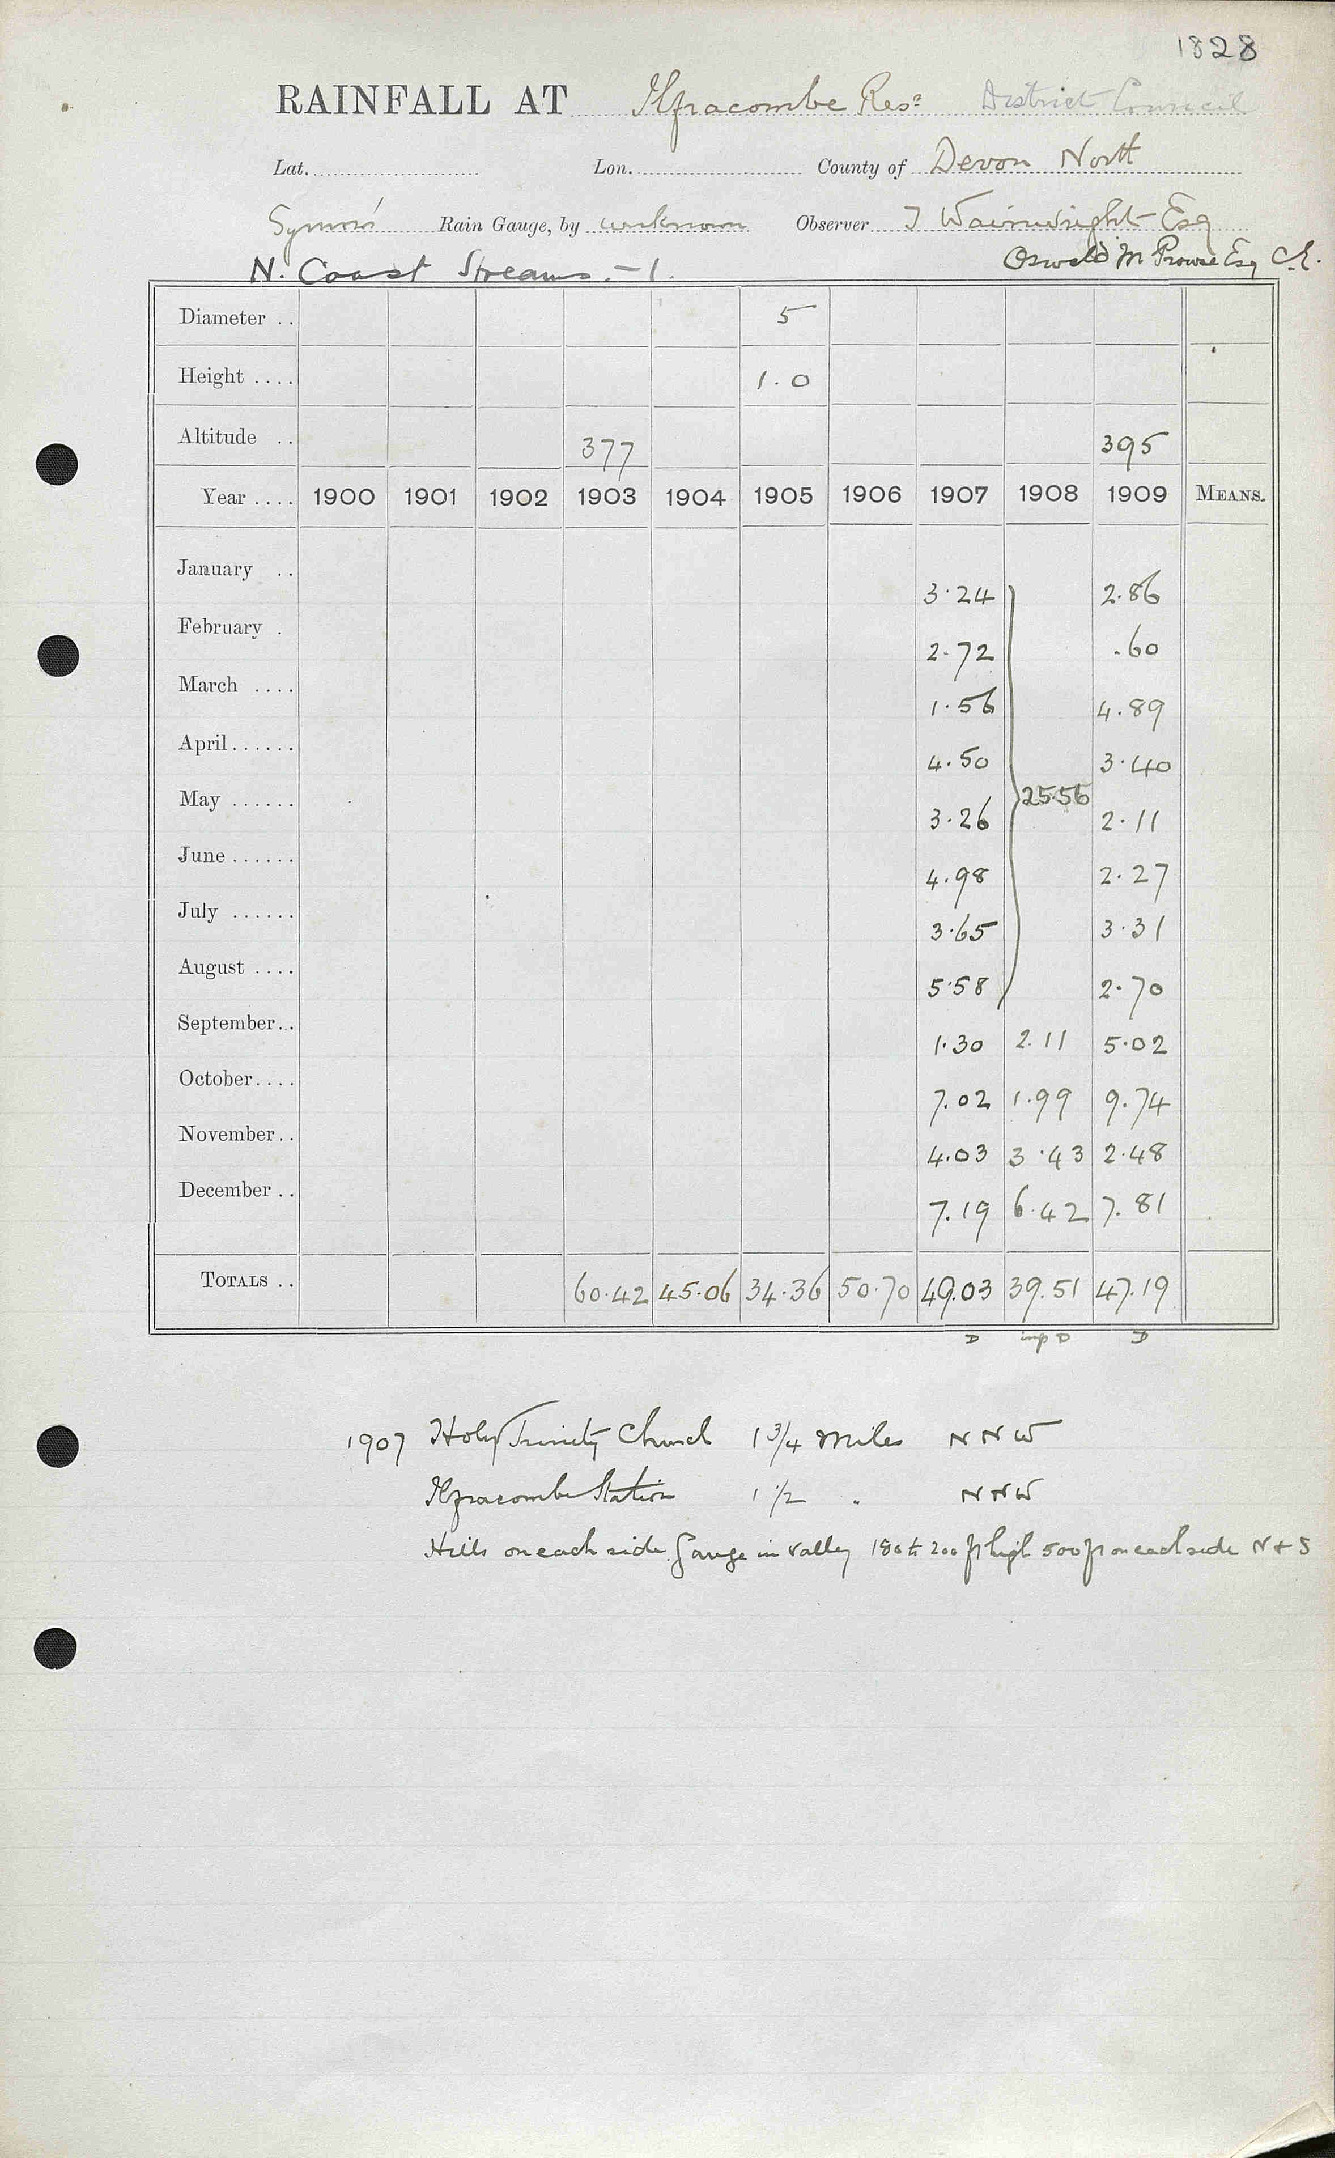 1828
RAINFALL AT Ilfracombe Resr District Council
Lat. Lon. County of Devon North
Symon's Rain Gauge, by unknown Observer J Wainwright Esq
N. Coast Streams.-1. Oswald M Prowse Esq C.E.
Diameter .. 5
Height .... 1.0
Altitude .. 377 395
Year .... 1900 1901 1902 1903 1904 1905 1906 1907 1908 1909 MEANS.
January .. 3.24 2.86
February . 2.72 .60
March .... 1.56 4.89
April...... 4.50 3.40
May ...... 3.26 25.56 2.11
June ...... 4.98 2.27
July ...... 3.65 3.31
August .... 5.58 2.70
September.. 1.30 2.11 5.02
October.... 7.02 1.99 9.74
November.. 4.03 3.43 2.48
December .. 7.19 6.42 7.81
TOTALS .. 60.42 45.06 34.36 50.70 49.03 39.51 47.19
D imp D D
1907 Holy Trinity Church 1 3/4 miles NNW
Ilfracombe Station 1 1/2 . NNW
Hills on each side. Gauge in valley 180 to 200 ft high 500 ft on each side N + S